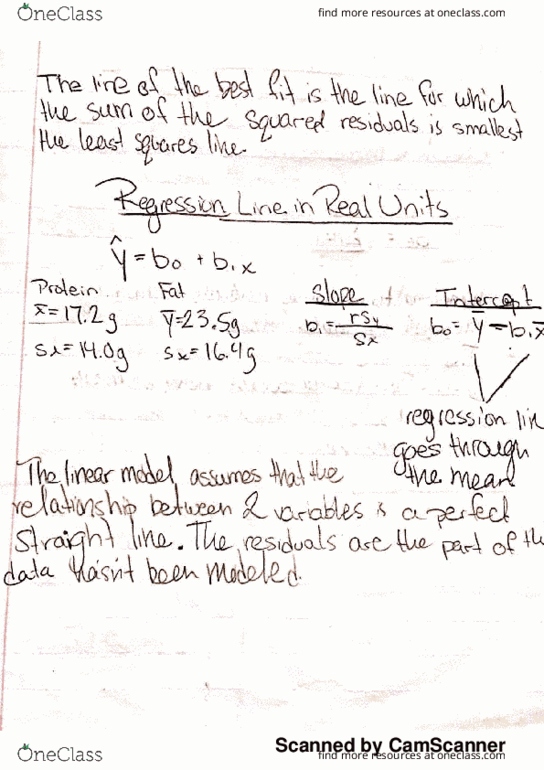 OneClass
find more resources at oneclass.com
The line of the best fit is the line for which
the sum of the squared residuals is smallest
the least squares line.
Regression Line in Real Units
ŷ = b₀ + b₁x
Protein Fat Slope Intercept
x̄ = 17.2g ȳ = 23.5g b₁ = rSy/Sx b₀ = ȳ - b₁x̄
Sx = 14.0g Sx = 16.4g
regression lin
goes through
the mean
The linear model assumes that the
relationship between 2 variables is a perfect
straight line. The residuals are the part of th
data hasn't been modeled.
Scanned by CamScanner
OneClass
find more resources at oneclass.com